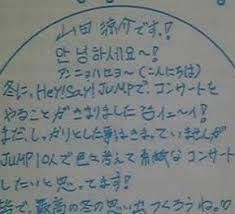 山田涼介です!
안녕하세요〜!
アンニョハセヨ〜(こんにちは)
冬に、Hey!Say!JUMPで、コンサートを
やることがきまりました イェ〜イ!
まだ、しっかりとした事はきまっていませんが
JUMP10人で色々考えて素敵なコンサート
したいと思ってます!
皆で、最高の冬の思い出つくろうね。♡